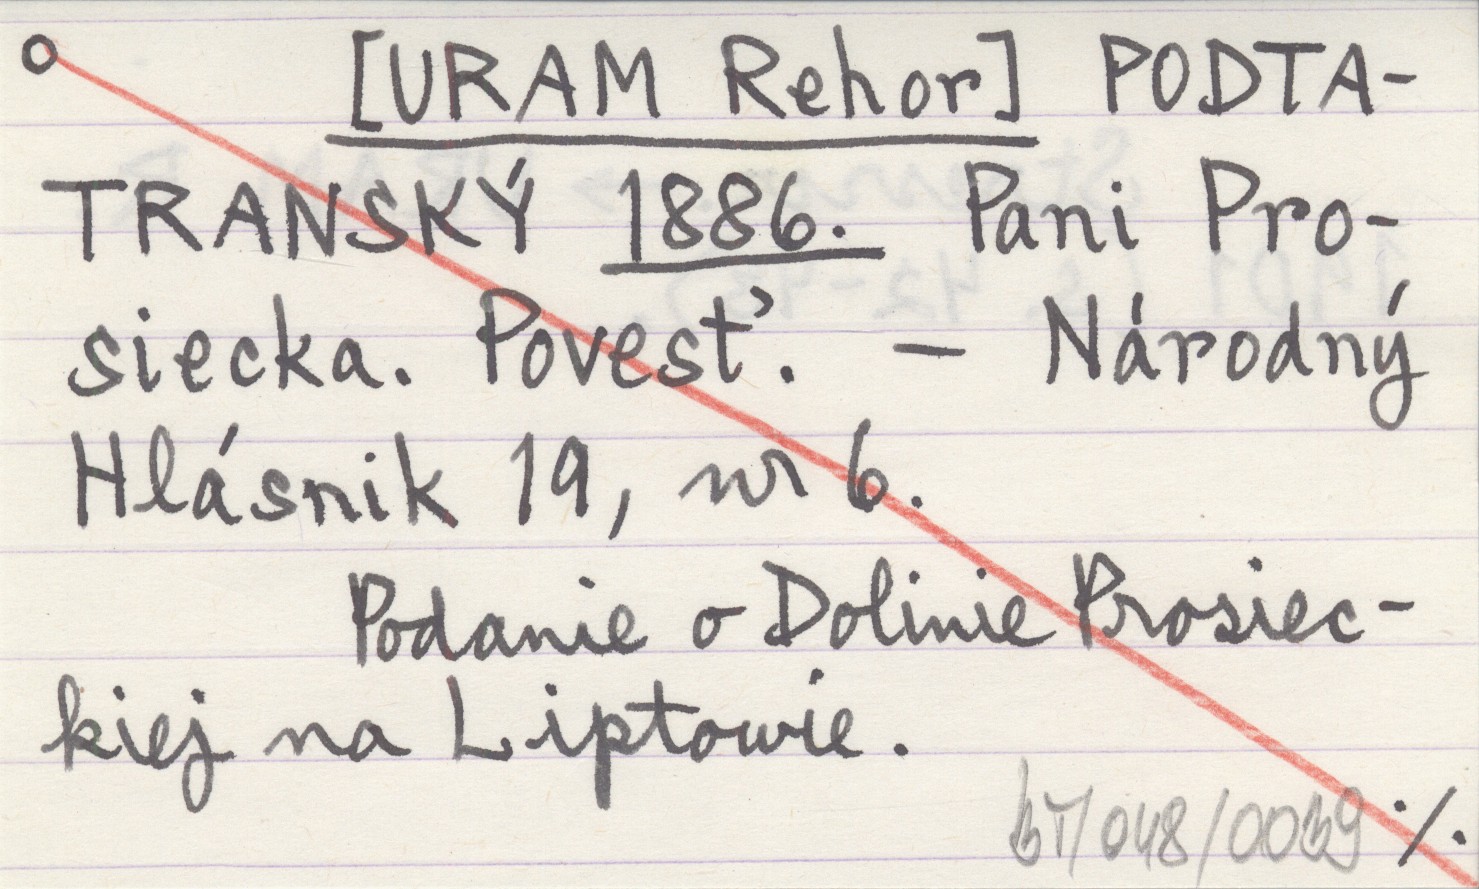 [URAM Rehor] PODTA-
TRANSKÝ 1886. Pani Pro-
siecka. Povesť. – Národný
Hlásnik 19, nr 6.
Podanie o Dolinie Prosiec-
kiej na Liptowie.
BT/048/0039 ·/.